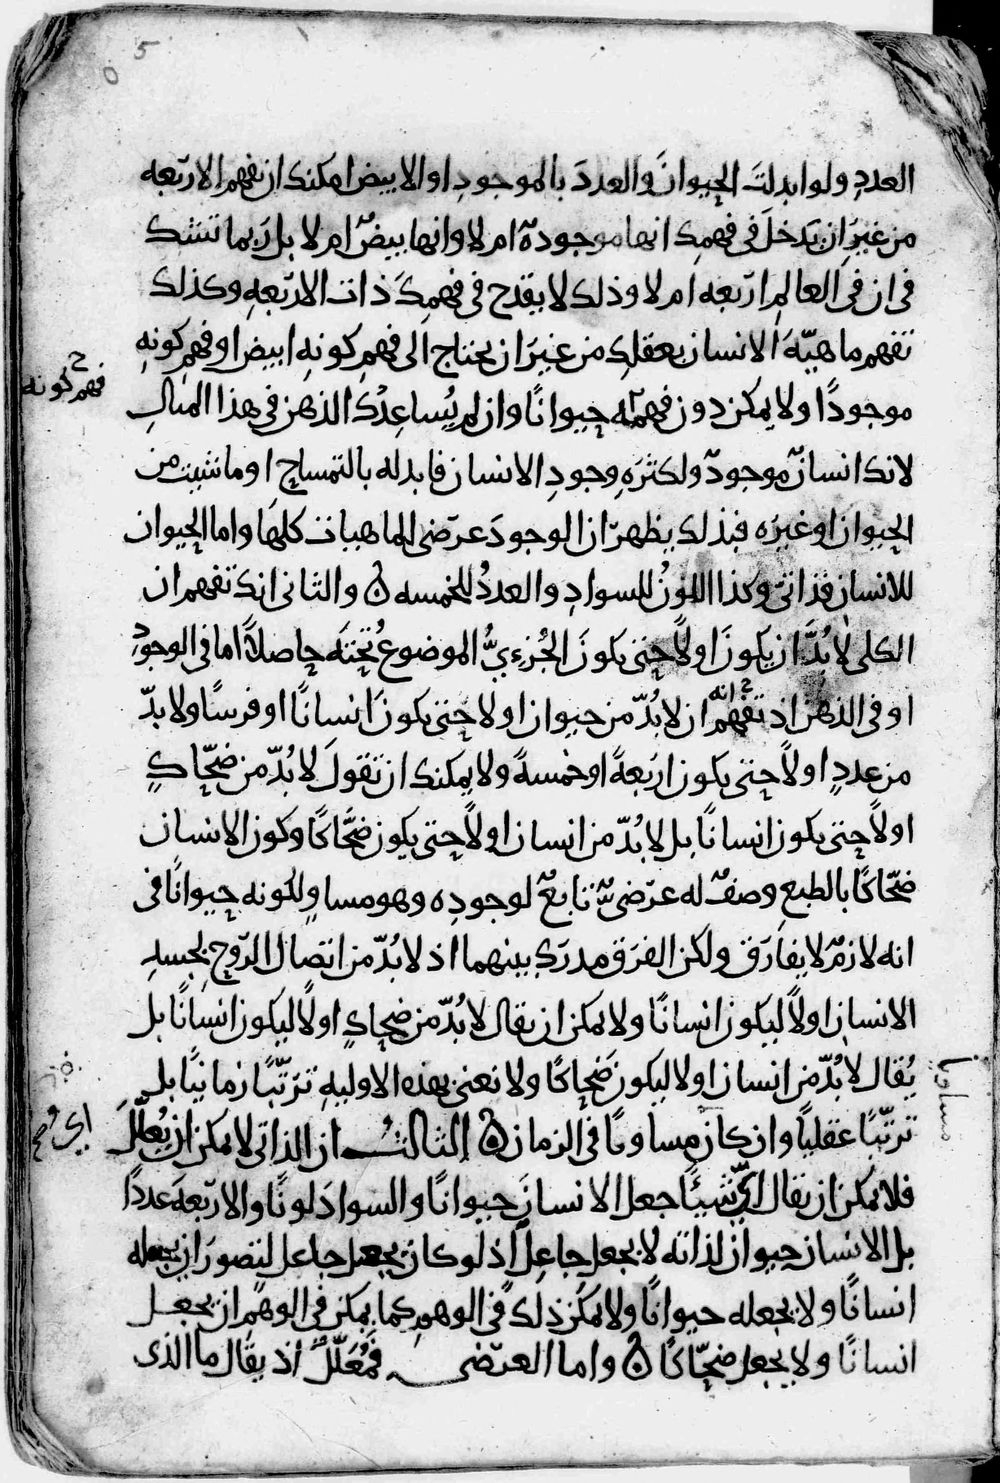 5
العددِ ولو ابدلتَ الحيوانَ والعددَ بالموجودِ او الابيض امكنك ان تفهم الاربَعه
من غيرَ ان يَدخلَ فى فهمِك انها موجودةٌ ام لا وانها بيضٌ ام لا بل رُبما تشك
فى ان فى العالمِ اربَعه ام لا وذلك لا يقدح فى فهمِكَ ذات الاربَعهِ وكذلك
تفهم ماهيّهَ الانسان بعقلِك من غيرَ ان يحتاج الى فهمِ كونهِ ابيض او فهمِ كونهِ
فهم كونه
موجودًا ولا يمكن دون فهمه حيوانًا وان لم يُساعِدْك الذهن فى هذا المثالِ
لانك انسانٌ موجودٌ ولكثرَهِ وجودِ الانسان فابدله بالتمساح او ما شيت من
الحيوان او غيرَه فبذلك يظهرَ ان الوجودَ عرَضى للماهيات كلهَا واما الحيوان
للانسان فذاتىٌ وكذا اللونُ للسوادِ والعددُ للخمسه ه والثانى انك تفهم ان
الكلى لا بُدَّ ان يكونَ اولاً حتى يكونَ الجُزءِىُّ الموضوعُ تحتَه حاصلاً اما فى الوجودِ
او فى الذهن اذ تفهم انه لا بُدّ من حيوان اولا حتى يكونَ انسانًا او فرسًا ولا بدّ
من عددٍ اولاً حتى يكون اربَعةً او خمسةً ولا يمكنك ان تقولَ لا بُدّ من ضحّاكٍ
اولاً حتى يكون انسانًا بل لا بُدّ من انسان اولاً حتى يكون ضحَّاكًا وكون الانسان
ضحّاكًا بالطبعِ وصفٌ له عرَضىٌّ تابعٌ لوجودِه وهو مساوٍ لكونه حيوانًا فى
انه لازمٌ لا يفارَق ولكن الفرَق مدرَك بينهما اذ لا بُدّ من اتصال الرَوحِ بجسدِ
الانسان اولاً ليكون انسانًا ولا يمكن ان يقال لا بُدّ من ضحاكٍ اولاً ليكون انسانًا بل
يُقال لا بُدّ من انسان اولا ليكون ضحاكًا ولا نعنى بهذه الاوليهِ ترَتّبًا زمانيًا بل
ترَتّبًا عقليًا وان كان مساويًا فى الزمان ه الثالث ان الذاتى لا يمكن ان يُعلَّلَ
مساويا
فلا يمكن ان يقال اىُّ شىءٍ جعل الانسانَ حيوانًا والسوادَ لونًا والاربَعهَ عددًا
بل الانسان حيوان لذاته لا بجعل جاعِل اذ لو كان بجعل جاعل لتصورَ ان يجعله
انسانًا ولا يجعله حيوانًا ولا يمكن ذلك فى الوهمِ كما يمكن فى الوهم ان يجعل
انسانًا ولا يجعل ضحّاكًا ه واما العرَضى فمُعَلّلٌ اذ يقال ما الذى